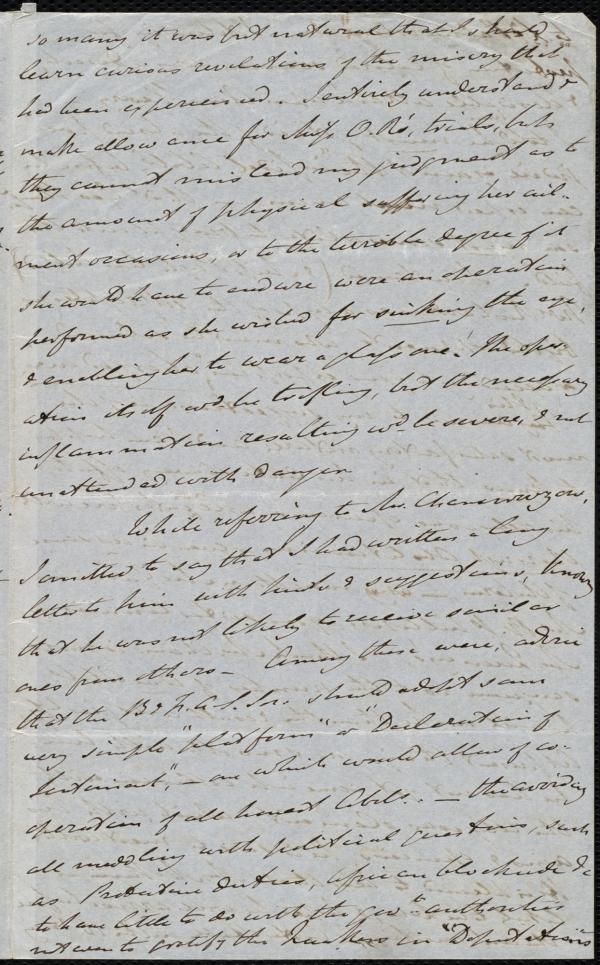 so many it was but natural that I should
learn curious revelations of the misery that
had been experienced. I entirely understand &
make allowance for Miss O. R's, trials, but
they cannot mislead my judgment as to
the amount of physical suffering her ail-
ment occasions, or to the terrible degree of it
she would have to endure were an operation
performed as she wished for sinking the eye,
& enabling her to wear a glass one! The oper-
ation itself wd. be trifling, but the necessary
inflammation resulting wd. be severe, & not
unattended with danger
While referring to Mr. Chamerovzow,
I omitted to say that I had written a long
letter to him with hints & suggestions, knowg
that he was not likely to receive similar
ones from others — Among these were, advice
that the B & F. A. S. So. should adopt some
very simple "platform" or "Declaration of
Sentiment", — one which would allow of co-
operation of all honest Abols. — the avoiding
all meddling with political questions, such
as Protective duties, African blockade &c
to have little to do with the govt. authorities
not even to gratify the Quakers in "Deputations"